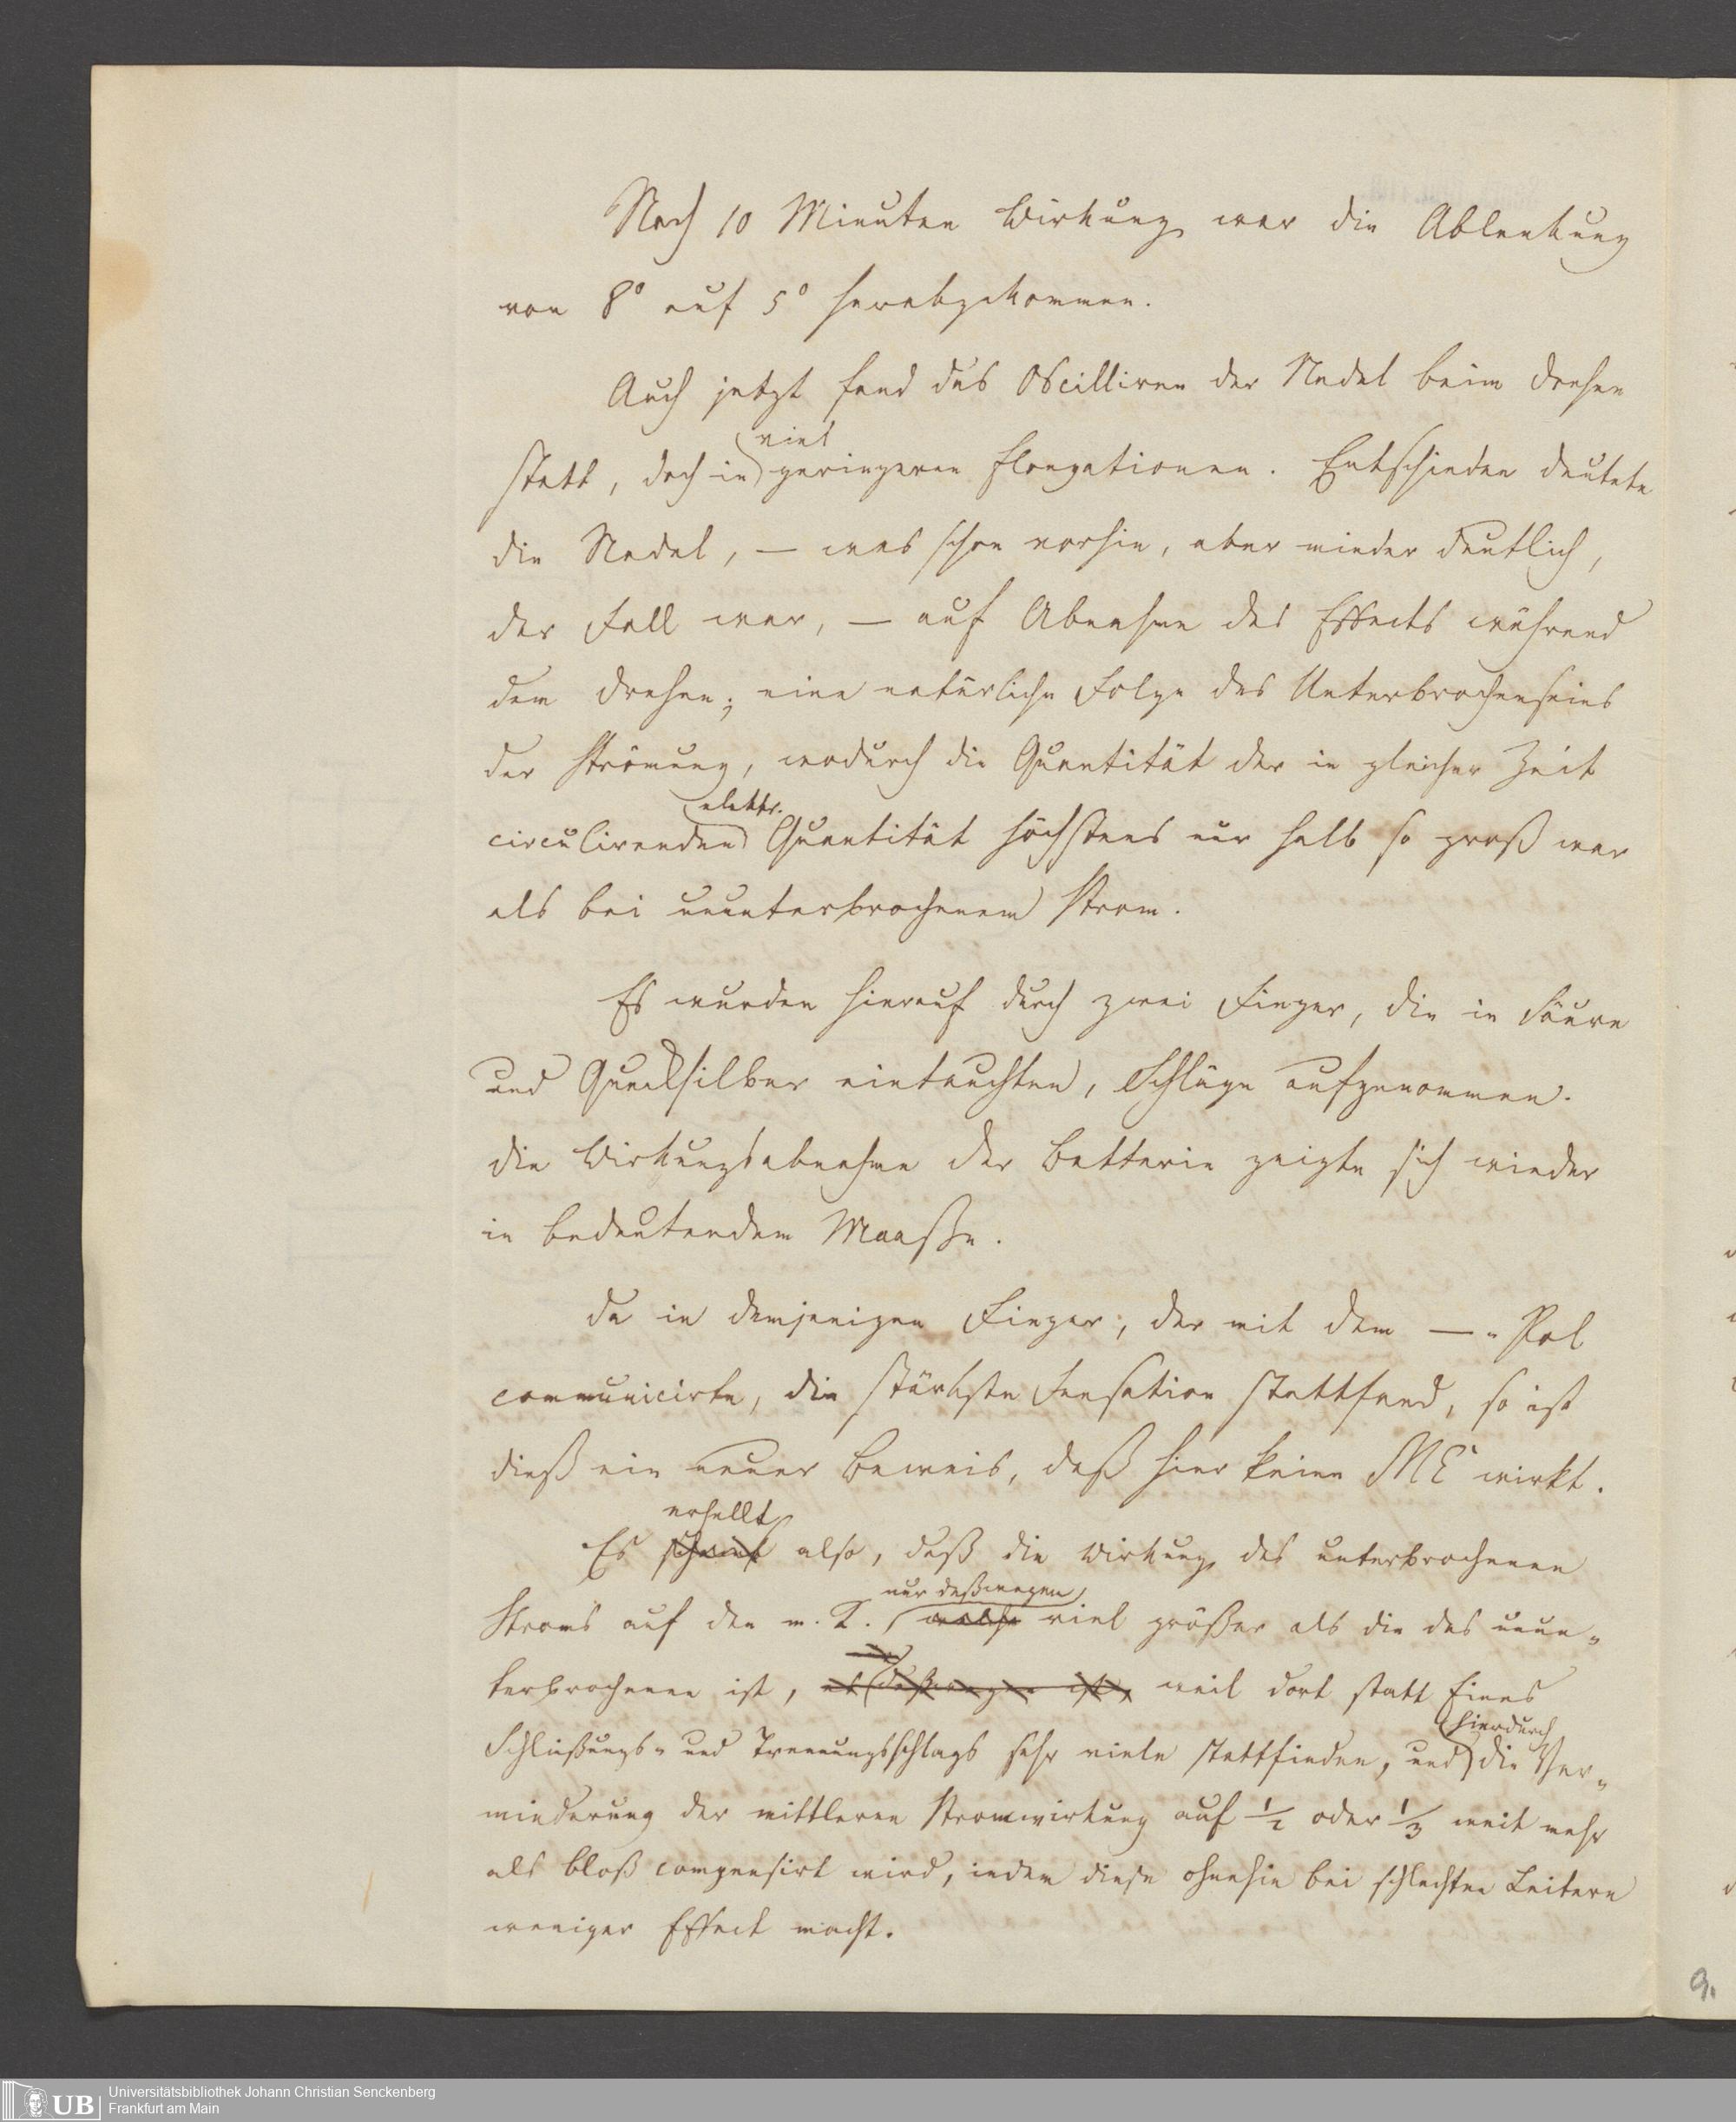 Nach 10 Minuten Wirkung war die Ablenkung
von 8° auf 5° herabgekommen.
Auch jetzt fand das Oscilliren der Nadel beim Drehen
viel
statt, doch in geringeren Elongationen. Entschieden deutete
die Nadel, — was schon vorhin, aber minder deutlich,
der Fall war, — auf Abnahme des Effects während
dem Drehen; eine natürliche Folge des Unterbrochenseins
der Strömung, wodurch die Quantität der in gleicher Zeit
elektr.
circulirenden Quantität höchstens nur halb so groß war
als bei ununterbrochenem Strom.
Es wurden hierauf durch zwei Finger, die in Säure
und Quecksilber eintauchten, Schläge aufgenommen.
Die Wirkungsabnahme der Batterie zeigte sich wieder
in bedeutendem Maaße.
Da in demjenigen Finger, der mit dem —-Pol
communicirte, die stärkste Sensation stattfand, so ist
dieß ein neuer Beweis, daß hier keine ME wirkt.
erhellt
Es scheint also, daß die Wirkung des unterbrochenen
nur deßwegen
Stroms auf den m. K. viel größer als die des unun-
terbrochenen ist, deßwegen ist, weil dort statt Eines
hierdurch
Schließungs- und Trennungsschlags sehr viele stattfinden, und die Ver-
minderung der mittleren Stromwirkung auf 1/2 oder 1/3 weit mehr
als bloß compensirt wird, indem diese ohnehin bei schlechten Leitern
weniger Effect macht.
9.
UB
Universitätsbibliothek Johann Christian Senckenberg
Frankfurt am Main